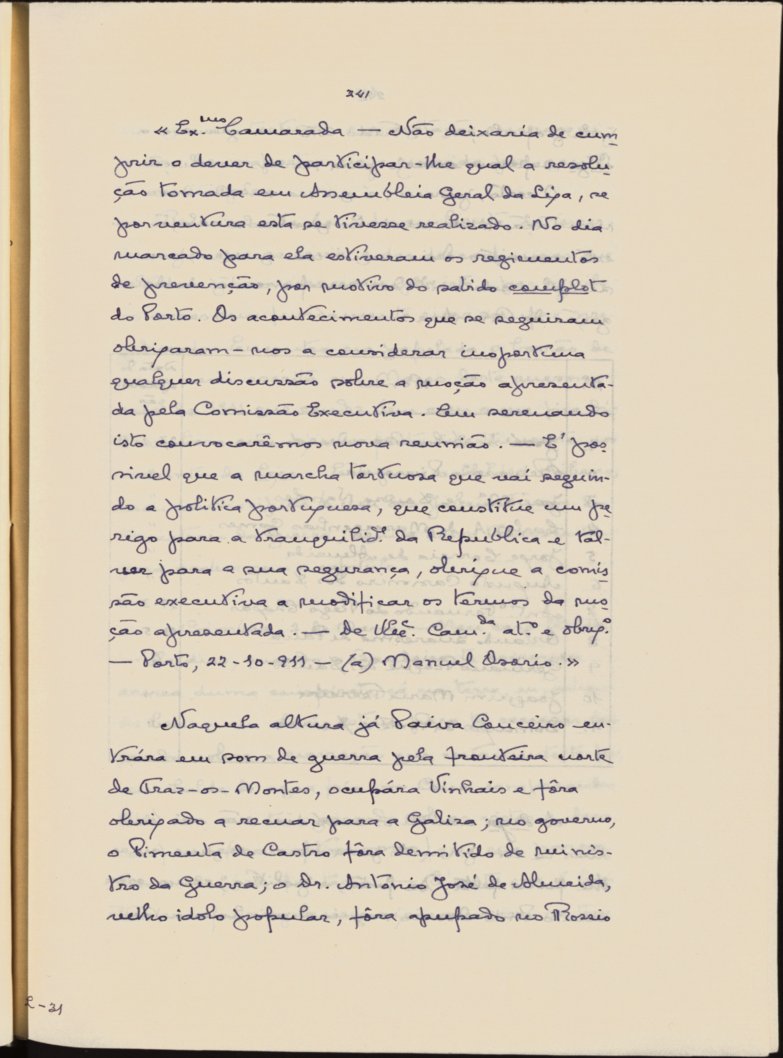 241
« Ex.mo Camarada — Não deixaria de cum-
prir o dever de participar-lhe qual a resolu-
ção tomada em Assembleia Geral da Liga, se
porventura esta se tivesse realizado. No dia
marcado para ela estiveram os regimentos
de prevenção, por motivo do sabido complot
do Porto. Os acontecimentos que se seguiram
obrigaram-nos a considerar inoportuna
qualquer discussão sobre a moção apresenta-
da pela Comissão Executiva. Em serenando
isto convocarêmos nova reunião. — E' pos-
sivel que a marcha tortuosa que vai seguin-
do a politica portuguesa, que constitue um pe-
rigo para a tranquilid.e da Republica e tal-
vez para a sua segurança, obrigue a comis-
são executiva a modificar os termos da mo-
ção apresentada. — De V. Ex.ª Cam.da at.º e obrig.º
— Porto, 22-10-911 — (a) Manuel Osorio. »
Naquela altura já Paiva Couceiro en-
trára em som de guerra pela fronteira norte
de Traz-os-Montes, ocupára Vinhais e fôra
obrigado a recuar para a Galiza; no governo,
o Pimenta de Castro fôra demitido de minis-
tro da Guerra; o Dr. Antonio José de Almeida,
velho idolo popular, fôra apupado no Rossio
2-31